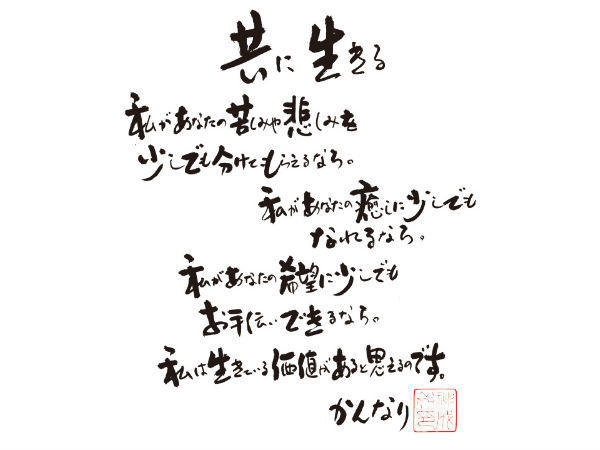 共に生きる
私があなたの苦しみや悲しみを
少しでも分けてもらえるなら。
私があなたの癒しに少しでも
なれるなら。
私があなたの希望に少しでも
お手伝いできるなら。
私は生きている価値があると思えるのです。
かんなり